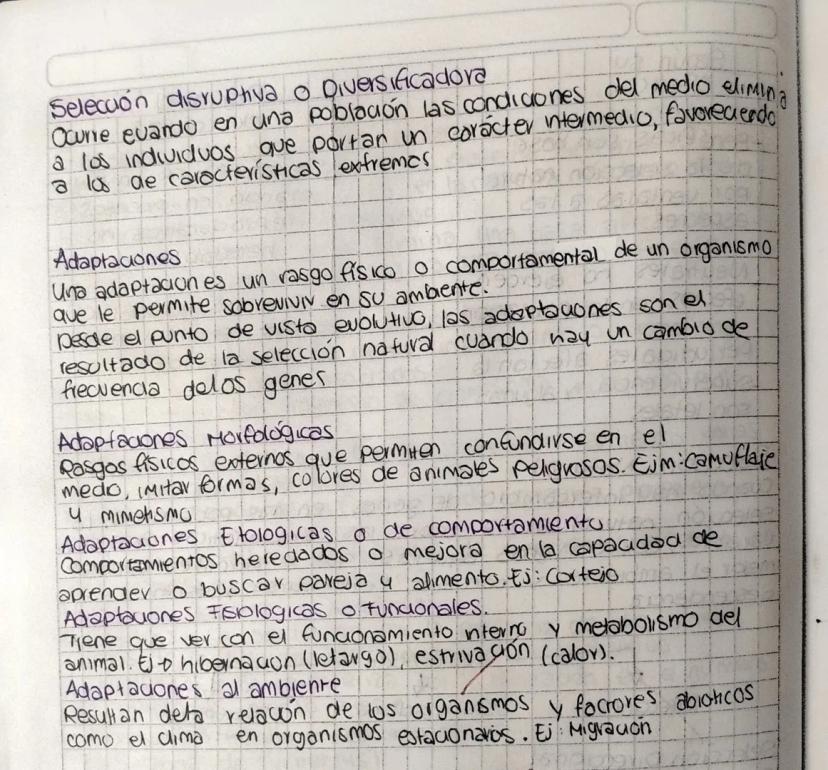 Selección disruptiva o Diversificadora
Ocurre cuando en una población las condiciones del medio elimina
a los individuos que portan un carácter intermedio, favoreciendo
a los de características extremos
Adaptaciones
Una adaptacion es un rasgo físico o comportamental de un organismo
que le permite sobrevivir en su ambiente.
Desde el punto de vista evolutivo, las adaptaciones son el
resultado de la selección natural cuando hay un cambio de
frecuencia delos genes
Adaptaciones Morfológicas
Rasgos físicos externos que permiten confundirse en el
medio, imitar formas, colores de animales peligrosos. Ejm: camuflaje
y mimetismo
Adaptaciones Etologicas o de comportamiento
Comportamientos heredados o mejora en la capacidad de
aprender o buscar pareja y alimento. Ej: Cortejo
Adaptaciones Fisiologicas o Funcionales.
Tiene que ver con el funcionamiento interno y metabolismo del
animal. Ej → hibernacion (letargo), estrivación (calor).
Adaptaciones al ambiente
Resultan dela relación de los organismos y factores abioticos
como el clima en organismos estacionarios. Ej: Migración